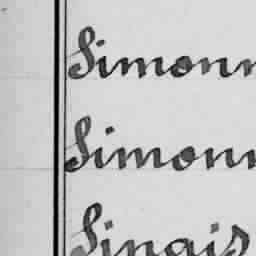 Simonn
Simonn
Sinais